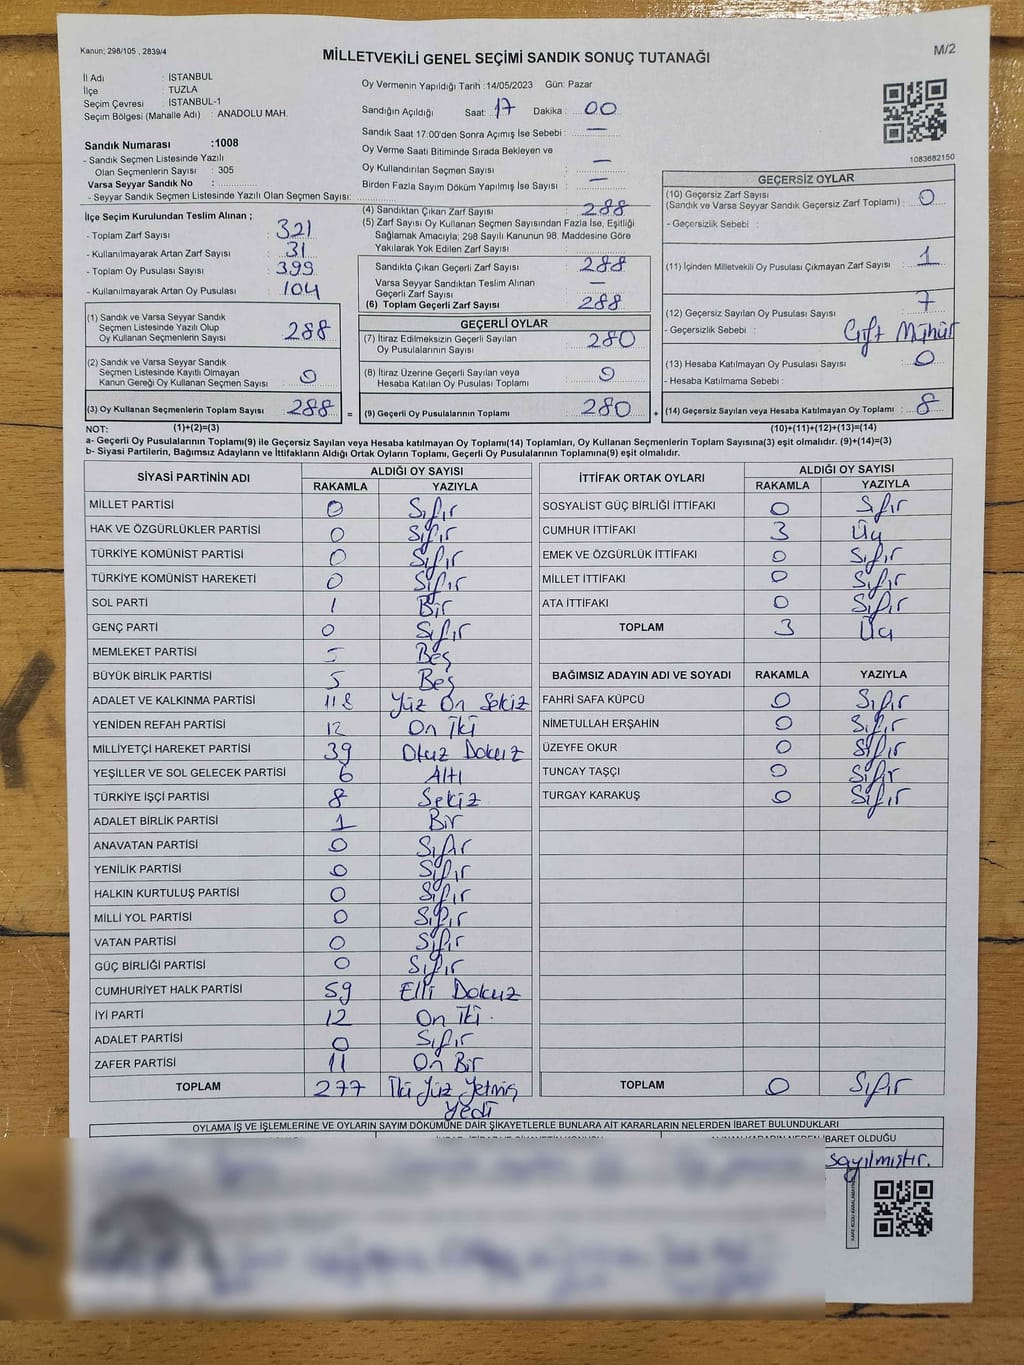 Kanun; 298/105 , 2839/4
MİLLETVEKİLİ GENEL SEÇİMİ SANDIK SONUÇ TUTANAĞI
M/2
İl Adı : İSTANBUL
İlçe : TUZLA
Seçim Çevresi : İSTANBUL-1
Seçim Bölgesi (Mahalle Adı) : ANADOLU MAH.
Oy Vermenin Yapıldığı Tarih :14/05/2023 Gün: Pazar
Sandığın Açıldığı Saat: 17 Dakika : 00
Sandık Saat 17:00'den Sonra Açımış İse Sebebi : —
Oy Verme Saati Bitiminde Sırada Bekleyen ve
Oy Kullandırılan Seçmen Sayısı : —
Birden Fazla Sayım Döküm Yapılmış İse Sayısı : —
1083682150
Sandık Numarası :1008
- Sandık Seçmen Listesinde Yazılı
Olan Seçmenlerin Sayısı : 305
Varsa Seyyar Sandık No :
- Seyyar Sandık Seçmen Listesinde Yazılı Olan Seçmen Sayısı:
İlçe Seçim Kurulundan Teslim Alınan ;
- Toplam Zarf Sayısı : 321
- Kullanılmayarak Artan Zarf Sayısı : 31
- Toplam Oy Pusulası Sayısı : 399
- Kullanılmayarak Artan Oy Pusulası : 104
(1) Sandık ve Varsa Seyyar Sandık
Seçmen Listesinde Yazılı Olup
Oy Kullanan Seçmenlerin Sayısı : 288
(2) Sandık ve Varsa Seyyar Sandık
Seçmen Listesinde Kayıtlı Olmayan
Kanun Gereği Oy Kullanan Seçmen Sayısı : 0
(3) Oy Kullanan Seçmenlerin Toplam Sayısı : 288 =
(4) Sandıktan Çıkan Zarf Sayısı : 288
(5) Zarf Sayısı Oy Kullanan Seçmen Sayısından Fazla İse, Eşitliği
Sağlamak Amacıyla; 298 Sayılı Kanunun 98. Maddesine Göre
Yakılarak Yok Edilen Zarf Sayısı :
Sandıkta Çıkan Geçerli Zarf Sayısı : 288
Varsa Seyyar Sandıktan Teslim Alınan
Geçerli Zarf Sayısı : —
(6) Toplam Geçerli Zarf Sayısı : 288
GEÇERLİ OYLAR
(7) İtiraz Edilmeksizin Geçerli Sayılan
Oy Pusulalarının Sayısı : 280
(8) İtiraz Üzerine Geçerli Sayılan veya
Hesaba Katılan Oy Pusulası Toplamı : 0
(9) Geçerli Oy Pusulalarının Toplamı : 280 +
GEÇERSİZ OYLAR
(10) Geçersiz Zarf Sayısı
(Sandık ve Varsa Seyyar Sandık Geçersiz Zarf Toplamı) : 0
- Geçersizlik Sebebi :
(11) İçinden Milletvekili Oy Pusulası Çıkmayan Zarf Sayısı : 1
(12) Geçersiz Sayılan Oy Pusulası Sayısı : 7
- Geçersizlik Sebebi : Çift Mühür
(13) Hesaba Katılmayan Oy Pusulası Sayısı : 0
- Hesaba Katılmama Sebebi :
(14) Geçersiz Sayılan veya Hesaba Katılmayan Oy Toplamı : 8
NOT: (1)+(2)=(3) (10)+(11)+(12)+(13)=(14)
a- Geçerli Oy Pusulalarının Toplamı(9) ile Geçersiz Sayılan veya Hesaba katılmayan Oy Toplamı(14) Toplamları, Oy Kullanan Seçmenlerin Toplam Sayısına(3) eşit olmalıdır. (9)+(14)=(3)
b- Siyasi Partilerin, Bağımsız Adayların ve İttifakların Aldığı Ortak Oyların Toplamı, Geçerli Oy Pusulalarının Toplamına(9) eşit olmalıdır.
SİYASİ PARTİNİN ADI ALDIĞI OY SAYISI
RAKAMLA YAZIYLA
MİLLET PARTİSİ 0 Sıfır
HAK VE ÖZGÜRLÜKLER PARTİSİ 0 Sıfır
TÜRKİYE KOMÜNİST PARTİSİ 0 Sıfır
TÜRKİYE KOMÜNİST HAREKETİ 0 Sıfır
SOL PARTİ 1 Bir
GENÇ PARTİ 0 Sıfır
MEMLEKET PARTİSİ 5 Beş
BÜYÜK BİRLİK PARTİSİ 5 Beş
ADALET VE KALKINMA PARTİSİ 118 Yüz On Sekiz
YENİDEN REFAH PARTİSİ 12 On İki
MİLLİYETÇİ HAREKET PARTİSİ 39 Otuz Dokuz
YEŞİLLER VE SOL GELECEK PARTİSİ 6 Altı
TÜRKİYE İŞÇİ PARTİSİ 8 Sekiz
ADALET BİRLİK PARTİSİ 1 Bir
ANAVATAN PARTİSİ 0 Sıfır
YENİLİK PARTİSİ 0 Sıfır
HALKIN KURTULUŞ PARTİSİ 0 Sıfır
MİLLİ YOL PARTİSİ 0 Sıfır
VATAN PARTİSİ 0 Sıfır
GÜÇ BİRLİĞİ PARTİSİ 0 Sıfır
CUMHURİYET HALK PARTİSİ 59 Elli Dokuz
İYİ PARTİ 12 On İki.
ADALET PARTİSİ 0 Sıfır
ZAFER PARTİSİ 11 On Bir
TOPLAM 277 İki Yüz Yetmiş
Yedi
İTTİFAK ORTAK OYLARI ALDIĞI OY SAYISI
RAKAMLA YAZIYLA
SOSYALİST GÜÇ BİRLİĞİ İTTİFAKI 0 Sıfır
CUMHUR İTTİFAKI 3 Üç
EMEK VE ÖZGÜRLÜK İTTİFAKI 0 Sıfır
MİLLET İTTİFAKI 0 Sıfır
ATA İTTİFAKI 0 Sıfır
TOPLAM 3 Üç
BAĞIMSIZ ADAYIN ADI VE SOYADI RAKAMLA YAZIYLA
FAHRİ SAFA KÜPCÜ 0 Sıfır
NİMETULLAH ERŞAHİN 0 Sıfır
ÜZEYFE OKUR 0 Sıfır
TUNCAY TAŞÇI 0 Sıfır
TURGAY KARAKUŞ 0 Sıfır
TOPLAM 0 Sıfır
OYLAMA İŞ VE İŞLEMLERİNE VE OYLARIN SAYIM DÖKÜMÜNE DAİR ŞİKAYETLERLE BUNLARA AİT KARARLARIN NELERDEN İBARET BULUNDUKLARI
İBARET OLDUĞU
sayılmıştır.